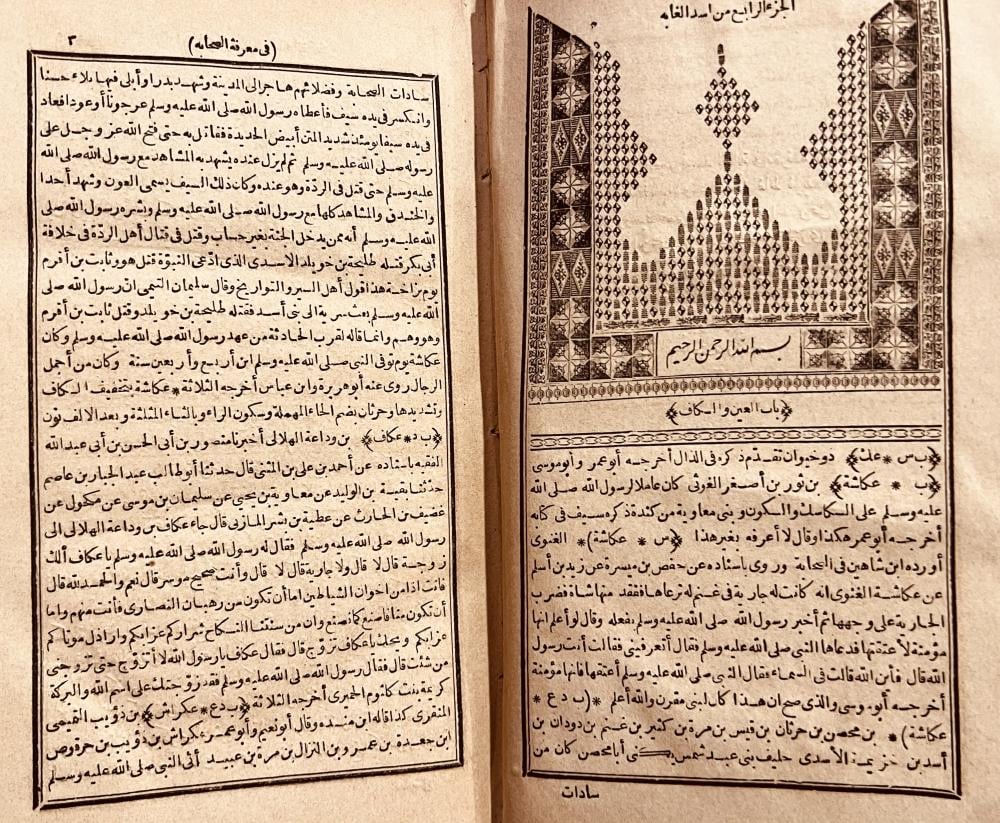 الجزء الرابع من اسد الغابه
بسم الله الرحمن الرحيم
﴿باب العين والكاف﴾
﴿ب س * عك﴾ ذو خيوان تقدّم ذكره فى الذال أخرجه أبو عمر وأبو موسى
﴿ب * عكاشة﴾ بن ثور بن أصغر الغوثى كان عاملا لرسول الله صلى الله
عليه وسلم على السكاسك والسكون وبنى معاوية من كندة ذكره سيف فى كتابه
أخرجه أبو عمر هكذا وقال لا أعرفه بغير هذا ﴿س * عكاشة﴾ * الغنوى
أورده ابن شاهين فى الصحابة وروى باسناده عن حفص بن ميسرة عن زيد بن أسلم
عن عكاشة الغنوى انه كانت له جارية فى غنم له ترعاها ففقد منها شاة فضرب
الجارية على وجهها ثم أخبر رسول الله صلى الله عليه وسلم بفعله وقال لو أعلم انها
مؤمنة لأعتقتها فدعاها النبى صلى الله عليه وسلم فقال أتعرفينى فقالت أنت رسول
الله قال فأين الله قالت فى السماء فقال النبى صلى الله عليه وسلم أعتقها فانها مؤمنة
أخرجه أبو موسى والذى صح ان هذا كان لبنى مقرن والله أعلم * ﴿ب د ع *
عكاشة﴾ * بن محصن بن حرثان بن قيس بن مرة بن كثير بن غنم بن دودان بن
أسد بن خزيمة الأسدى حليف بنى عبد شمس يكنى أبا محصن كان من
سادات
(فى معرفة الصحابه)
٣
سادات الصحابة وفضلائهم هاجر الى المدينة وشهد بدرا وأبلى فيها بلاء حسنا
وانكسر فى يده سيف فأعطاه رسول الله صلى الله عليه وسلم عرجونا أو عودا فعاد
فى يده سيفا يومئذ شديد المتن أبيض الحديدة فقاتل به حتى فتح الله عز وجل على
رسوله صلى الله عليه وسلم ثم لم يزل عنده يشهد به المشاهد مع رسول الله صلى الله
عليه وسلم حتى قتل فى الردّة وهو عنده وكان ذلك السيف يسمى العون وشهد أحدا
والخندق والمشاهد كلها مع رسول الله صلى الله عليه وسلم وبشره رسول الله صلى
الله عليه وسلم أنه ممن يدخل الجنة بغير حساب وقتل فى قتال أهل الردّة فى خلافة
أبى بكر قتله طليحة بن خويلد الأسدى الذى ادّعى النبوّة قتل هو وثابت بن أقرم
يوم بزاخة هذا قول أهل السير والتواريخ وقال سليمان التيمى ان رسول الله صلى
الله عليه وسلم بعث سرية الى بنى أسد فقتله طليحة بن خويلد وقتل ثابت بن أقرم
وهو وهم وانما قاله لقرب الحادثة من عهد رسول الله صلى الله عليه وسلم وكان
عكاشة يوم توفى النبى صلى الله عليه وسلم ابن أربع وأربعين سنة وكان من أجمل
الرجال روى عنه أبو هريرة وابن عباس أخرجه الثلاثة * عكاشة بتخفيف الكاف
وتشديدها وحرثان بضم الحاء المهملة وسكون الراء وبالثاء المثلثة وبعد الالف نون
﴿ب د * عكاف﴾ بن وداعة الهلالى أخبرنا منصور بن أبى الحسن بن أبى عبد الله
الفقيه باسناده عن أحمد بن على بن المثنى قال حدثنا أبو طالب عبد الجبار بن عاصم
حدّثنا بقية بن الوليد عن معاوية بن يحيى عن سليمان بن موسى عن مكحول عن
غضيف بن الحارث عن عطية بن بشر المازنى قال جاء عكاف بن وداعة الهلالى الى
رسول الله صلى الله عليه وسلم فقال له رسول الله صلى الله عليه وسلم يا عكاف ألك
زوجة قال لا قال ولا جارية قال لا قال وأنت صحيح موسر قال نعم والحمد لله قال
فأنت اذا من اخوان الشياطين اما أن تكون من رهبان النصارى فأنت منهم واما
أن تكون منا فاصنع كما نصنع وان من سنتنا النكاح شراركم عزابكم وأراذل موتاكم
عزابكم ويحك يا عكاف تزوّج قال فقال عكاف يا رسول الله لا أتزوّج حتى تزوّجنى
من شئت قال فقال رسول الله صلى الله عليه وسلم فقد زوّجتك على اسم الله والبركة
كريمة بنت كلثوم الحميرى أخرجه الثلاثة ﴿ب د ع * عكراش﴾ بن ذؤيب التميمى
المنقرى كذا قاله ابن منده وقال أبو نعيم وأبو عمر عكراش بن ذؤيب بن حرقوص
ابن جعدة بن عمرو بن النزال بن مرة بن عبيد أتى النبى صلى الله عليه وسلم